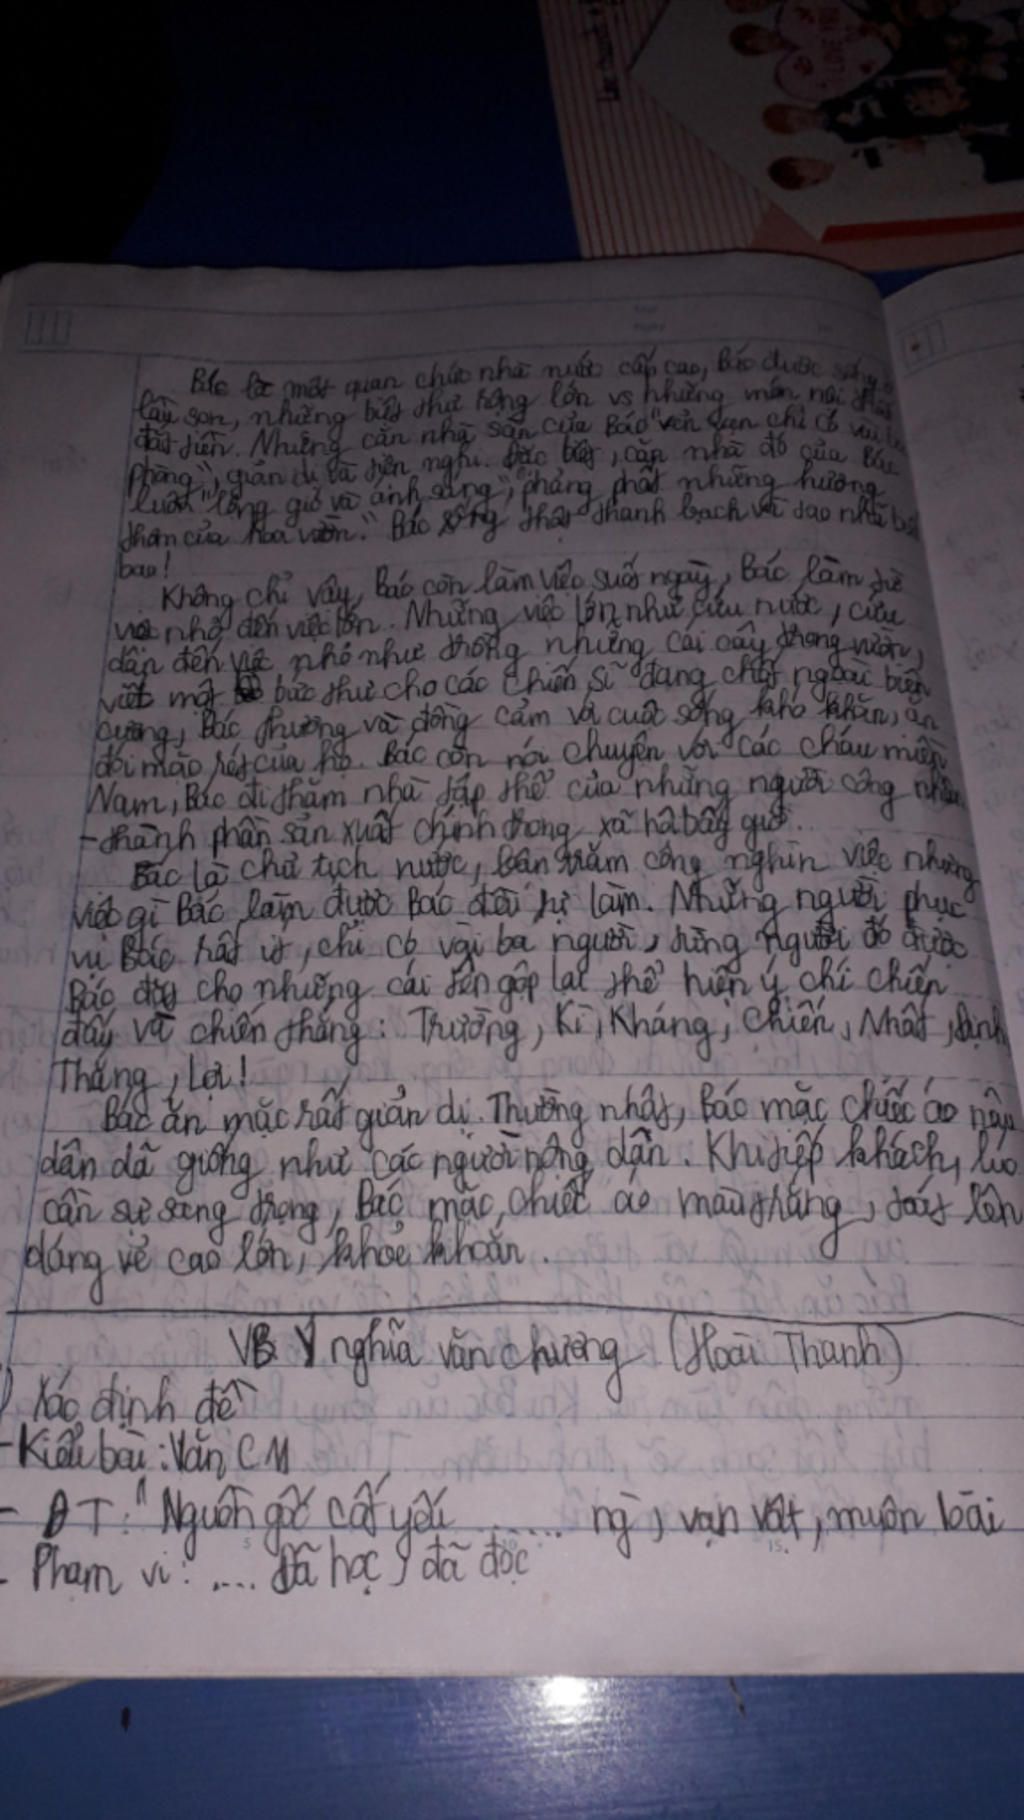 I LOVE YOU
Bác là một quan chức nhà nước cấp cao, Bác được sống ở
lầu son, những biệt thự rộng lớn vs những món nội thất
đắt tiền. Nhưng căn nhà sàn của Bác "vẻn vẹn chỉ có vài ba
phòng", giản dị và tiện nghi. Đặc biệt, căn nhà đó của Bác
luôn "lộng gió và ánh sáng", "phảng phất những hương
thơm của hoa vườn." Bác sống thật thanh bạch và tao nhã biết
bao!
Không chỉ vậy, Bác còn làm việc suốt ngày, Bác làm từ
việc nhỏ đến việc lớn. Những việc lớn như cứu nước, cứu
dân đến việc nhỏ như trồng những cái cây trong vườn,
viết một bức thư cho các chiến sĩ đang chốt ngoài biên
cương, Bác thương và đồng cảm với cuộc sống khó khăn, ăn
đói mặc rét của họ. Bác còn nói chuyện với các cháu miền
Nam, Bác đi thăm nhà tập thể của những người công nhân
- thành phần sản xuất chính trong xã hội bấy giờ.
Bác là chủ tịch nước, bận trăm công nghìn việc nhưng
việc gì Bác làm được Bác đều tự làm. Những người phục
vụ Bác rất ít, chỉ có vài ba người, từng người đó được
Bác đặt cho những cái tên gộp lại thể hiện ý chí chiến
đấy và chiến thắng: Trường, Kì, Kháng, Chiến, Nhất, Định,
Thắng, Lợi!
Bác ăn mặc rất giản dị. Thường nhật, Bác mặc chiếc áo nâu
dân dã giống như các người nông dân. Khi tiếp khách, lúc
cần sự sang trọng, Bác mặc chiếc áo màu trắng, toát lên
dáng vẻ cao lớn, khỏe khoắn.
VB Ý nghĩa văn chương (Hoài Thanh)
Xác định đề
- Kiểu bài: Văn CM
- ĐT: "Nguồn gốc cốt yếu ...... ng, vạn vật, muôn loài
- Phạm vi: .... Đã học, đã đọc